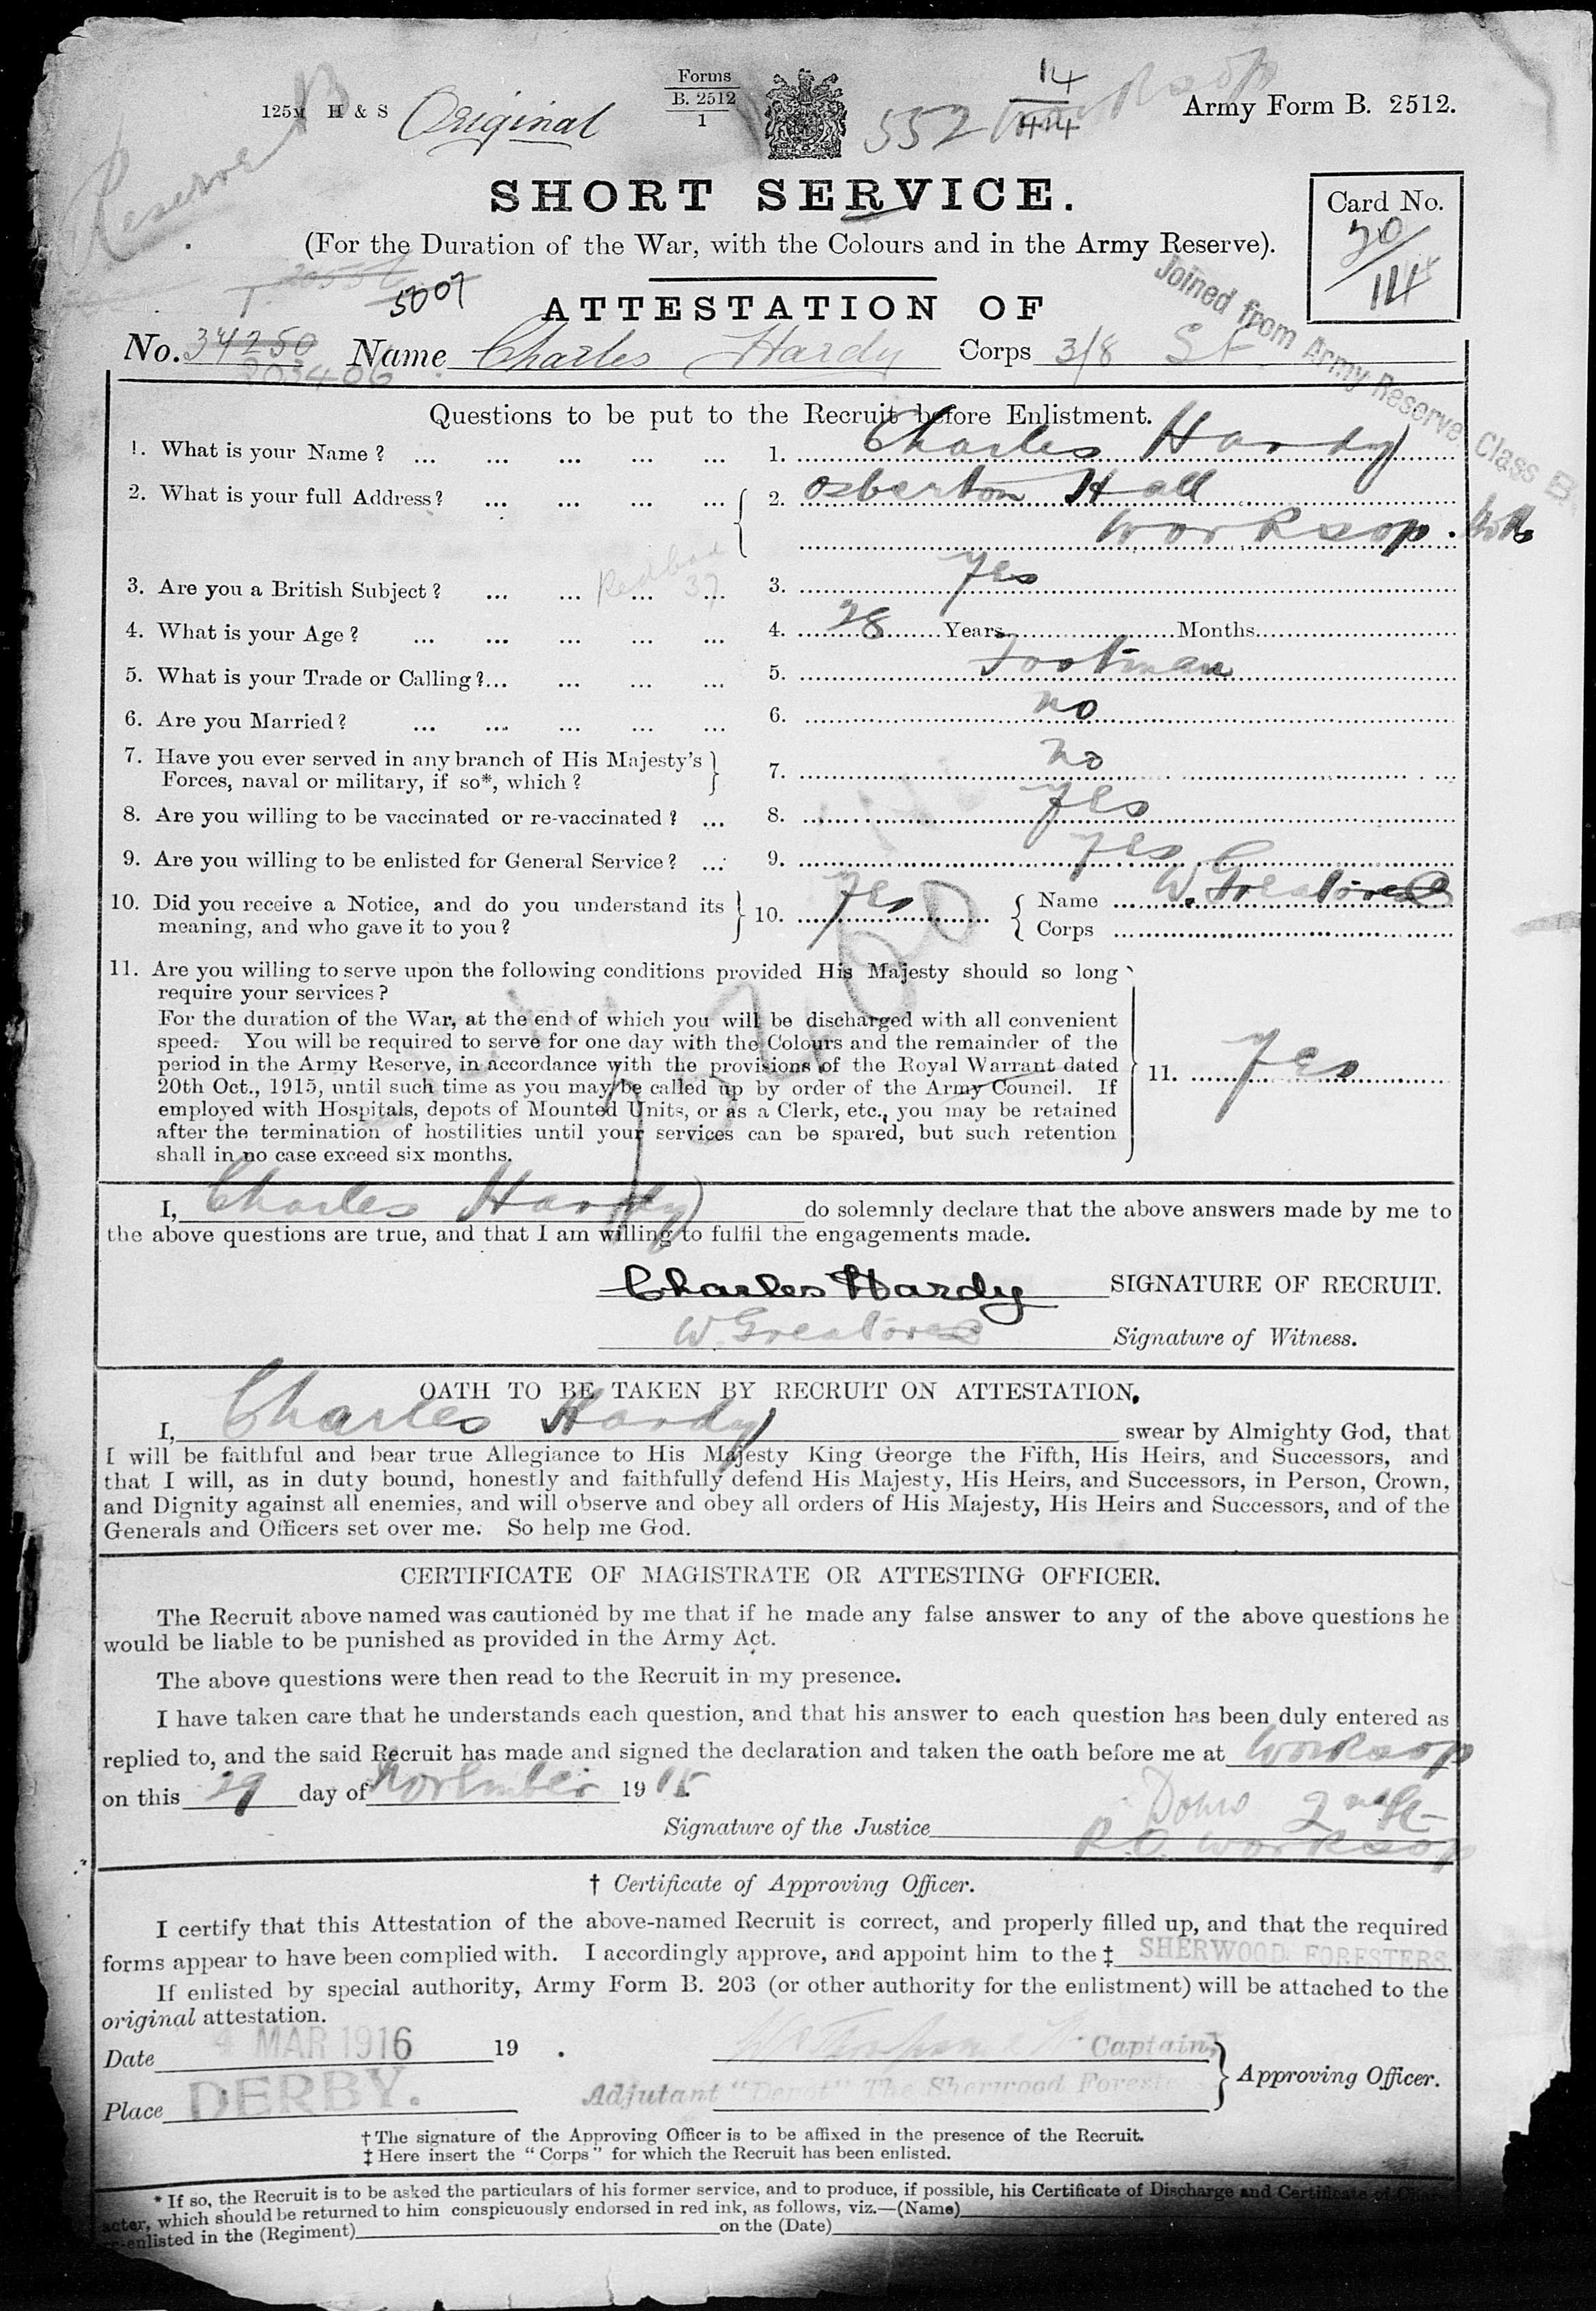 Reserve B
125M H & S Original
Forms
B. 2512
1
552 Worksop
14
Army Form B. 2512.
SHORT SERVICE.
(For the Duration of the War, with the Colours and in the Army Reserve).
Card No.
114
Joined from Army Reserve Class B.
5007
ATTESTATION OF
No. 34250 Name Charles Hardy Corps 3/8
Questions to be put to the Recruit before Enlistment.
1. What is your Name? ... ... ... ... ... 1. Charles Hardy
2. What is your full Address? ... ... ... ... 2. Osberton Hall
Worksop.
3. Are you a British Subject? ... ... ... ... 3. Yes
4. What is your Age? ... ... ... ... ... 4. 28 Years Months
5. What is your Trade or Calling?... ... ... ... 5. Footman
6. Are you Married? ... ... ... ... ... 6. no
7. Have you ever served in any branch of His Majesty's
Forces, naval or military, if so*, which? 7. no
8. Are you willing to be vaccinated or re-vaccinated? ... 8. Yes
9. Are you willing to be enlisted for General Service? ... 9. Yes
10. Did you receive a Notice, and do you understand its
meaning, and who gave it to you? 10. Yes Name W. Greatorex
Corps
11. Are you willing to serve upon the following conditions provided His Majesty should so long
require your services?
For the duration of the War, at the end of which you will be discharged with all convenient
speed. You will be required to serve for one day with the Colours and the remainder of the
period in the Army Reserve, in accordance with the provisions of the Royal Warrant dated
20th Oct., 1915, until such time as you may be called up by order of the Army Council. If
employed with Hospitals, depots of Mounted Units, or as a Clerk, etc., you may be retained
after the termination of hostilities until your services can be spared, but such retention
shall in no case exceed six months.
11. Yes
I, Charles Hardy do solemnly declare that the above answers made by me to
the above questions are true, and that I am willing to fulfil the engagements made.
Charles Hardy SIGNATURE OF RECRUIT.
W. Greatorex Signature of Witness.
OATH TO BE TAKEN BY RECRUIT ON ATTESTATION.
I, Charles Hardy swear by Almighty God, that
I will be faithful and bear true Allegiance to His Majesty King George the Fifth, His Heirs, and Successors, and
that I will, as in duty bound, honestly and faithfully defend His Majesty, His Heirs, and Successors, in Person, Crown,
and Dignity against all enemies, and will observe and obey all orders of His Majesty, His Heirs and Successors, and of the
Generals and Officers set over me. So help me God.
CERTIFICATE OF MAGISTRATE OR ATTESTING OFFICER.
The Recruit above named was cautioned by me that if he made any false answer to any of the above questions he
would be liable to be punished as provided in the Army Act.
The above questions were then read to the Recruit in my presence.
I have taken care that he understands each question, and that his answer to each question has been duly entered as
replied to, and the said Recruit has made and signed the declaration and taken the oath before me at Worksop
on this 29 day of November 1915
Signature of the Justice
R.O. Worksop
† Certificate of Approving Officer.
I certify that this Attestation of the above-named Recruit is correct, and properly filled up, and that the required
forms appear to have been complied with. I accordingly approve, and appoint him to the ‡ SHERWOOD FORESTERS
If enlisted by special authority, Army Form B. 203 (or other authority for the enlistment) will be attached to the
original attestation.
Date 4 MAR 1916 19 . Captain,
Approving Officer.
Place DERBY. Adjutant "Depot" The Sherwood Foresters
† The signature of the Approving Officer is to be affixed in the presence of the Recruit.
‡ Here insert the "Corps" for which the Recruit has been enlisted.
* If so, the Recruit is to be asked the particulars of his former service, and to produce, if possible, his Certificate of Discharge and Certificate of Char-
acter, which should be returned to him conspicuously endorsed in red ink, as follows, viz.—(Name)
re-enlisted in the (Regiment) on the (Date)